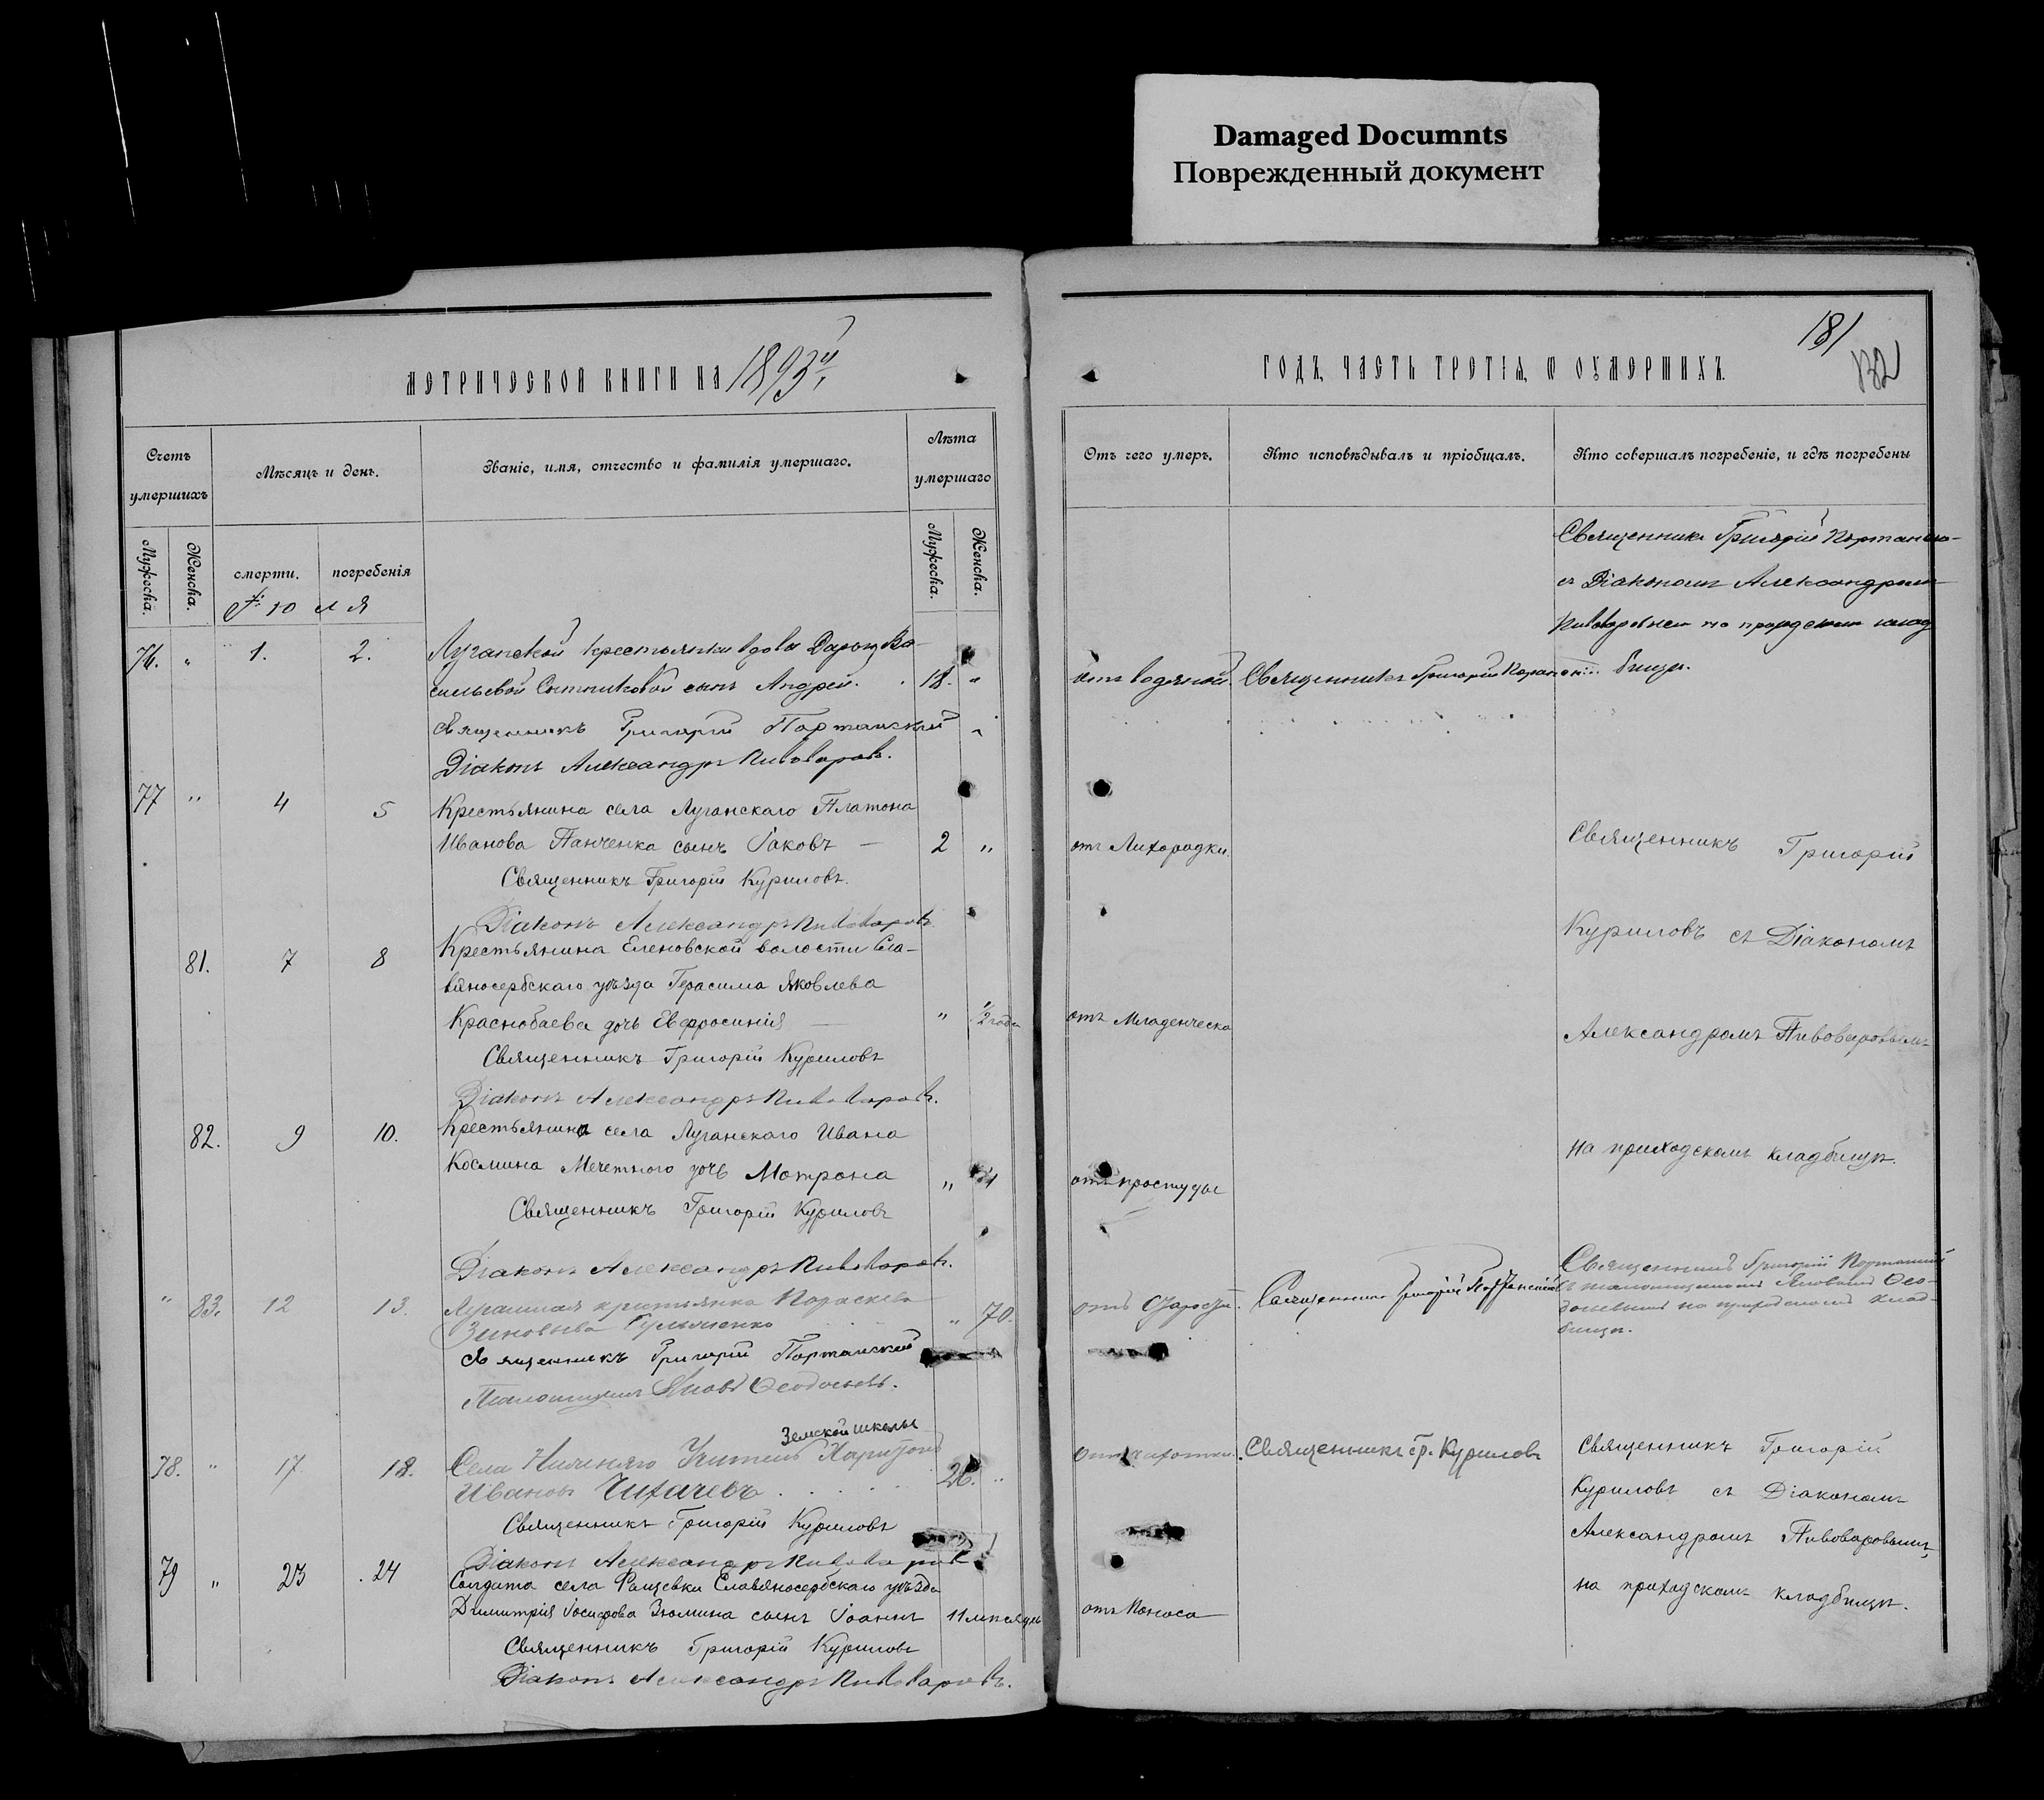 Damaged Documnts
Поврежденный документ
181
132
МЕТРИЧЕСКОЙ КНИГИ НА 1893й
ГОДЪ, ЧАСТЬ ТРЕТІЯ, Ѿ ОУМЕРШИХЪ.
Счетъ умершихъ
Мѣсяцъ и день.
Званіе, имя, отчество и фамилія умершаго.
Лѣта умершаго
Отъ чего умеръ.
Кто исповѣдывалъ и пріобщалъ.
Кто совершалъ погребеніе, и гдѣ погребены
Мужеска.
Женска.
смерти.
погребенія
Мужеска.
Женска.
Іюля
Священникъ Григорій
съ Діакономъ Александромъ
76. " 1. 2. Луганской крестьянки вдовы Ва-
сильевой Сотниковой сынъ Андрей. 18. " отъ водяной. Священникъ Григорій бищѣ.
Священникъ Григорій Портанскій
Діаконъ Александръ Пивоваровъ.
77 " 4 5 Крестьянина села Луганскаго Платона
Иванова Панченка сынъ Іаковъ — 2 " отъ Лихорадки. Священникъ Григорій
Священникъ Григорій Куриловъ.
Діаконъ Александръ Пивоваровъ Куриловъ съ Діакономъ
81. 7 8 Крестьянина Еленовской волости Сла-
вяносербскаго уѣзда Герасима Яковлева
Краснобаева дочь Евфросинія — " 1/2 года отъ Младенческа Александромъ Пивоваровымъ
Священникъ Григорій Куриловъ
Діаконъ Александръ Пивоваровъ.
82. 9 10. Крестьянина села Луганскаго Ивана на приходскомъ кладбищѣ.
Космина Мечетного дочь Мотрона " отъ простуды
Священникъ Григорій Куриловъ
Діаконъ Александръ Пивоваровъ.
Священникъ Григорій Портанскій
" 83. 12 13. крестьянка Параскева
Зиновьева " 70. отъ старости. Священникъ Григорій Портанскій
на приходскомъ клад-
бищѣ.
Священникъ Григорій Портанскій
Псаломщикъ Яковъ Ѳеодосьевъ.
Земской школы
78. " 17 18. Села Учитель Харитонъ
Ивановъ Чихачевъ 26. " отъ чахотки. Священникъ Гр. Куриловъ Священникъ Григорій
Куриловъ съ Діакономъ
Священникъ Григорій Куриловъ Александромъ Пивоваровымъ,
Діаконъ Александръ Пивоваровъ
79 " 23 24 Солдата села Фащевки Славяносербскаго уѣзда на приходскомъ кладбищѣ.
Димитрія Іосифова Зюмина сынъ Іоаннъ 11 мѣсяцъ отъ Поноса
Священникъ Григорій Куриловъ
Діаконъ Александръ Пивоваровъ.